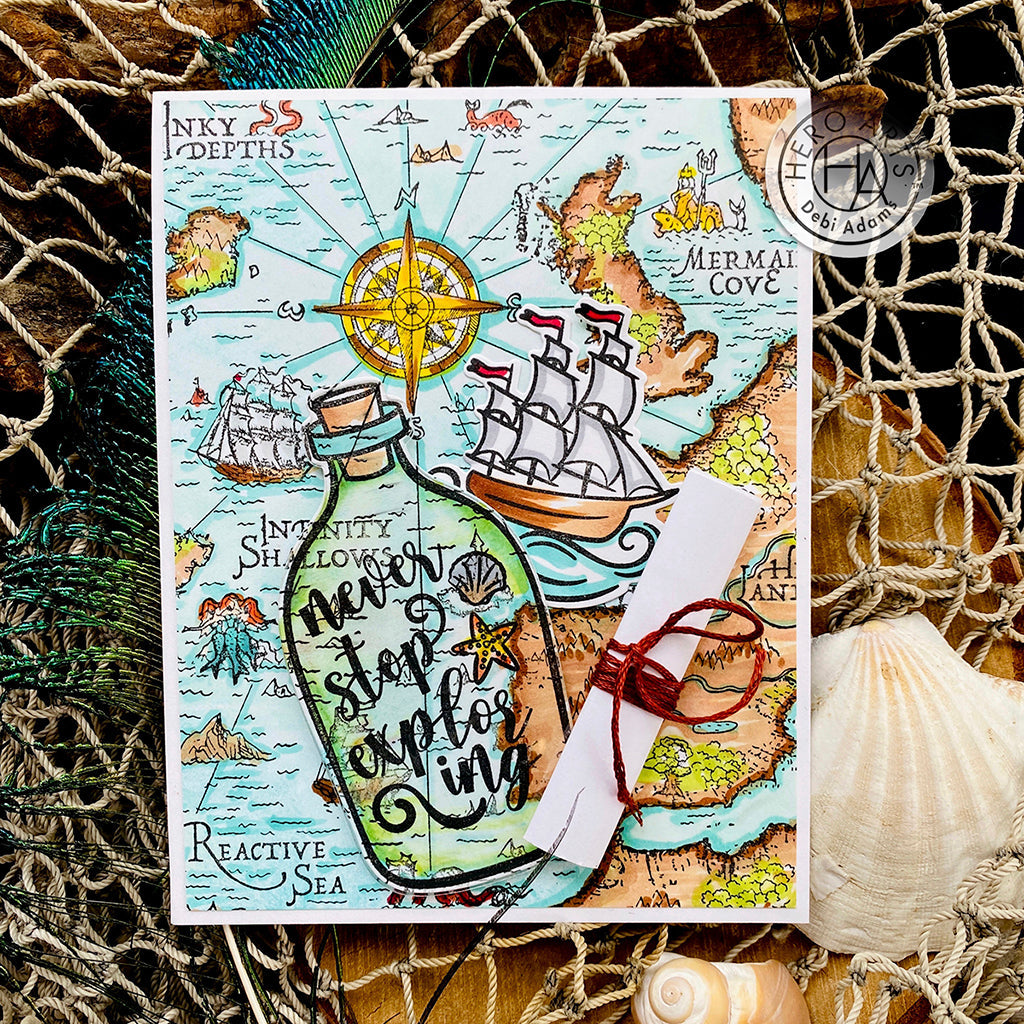 INKY
DEPTHS
N
HERO ARTS
HA
Debi Adams
MERMAI
COVE
S
INFINITY
SHALLOWS
never
stop
explor
ing
H
LAND
REACTIVE
SEA